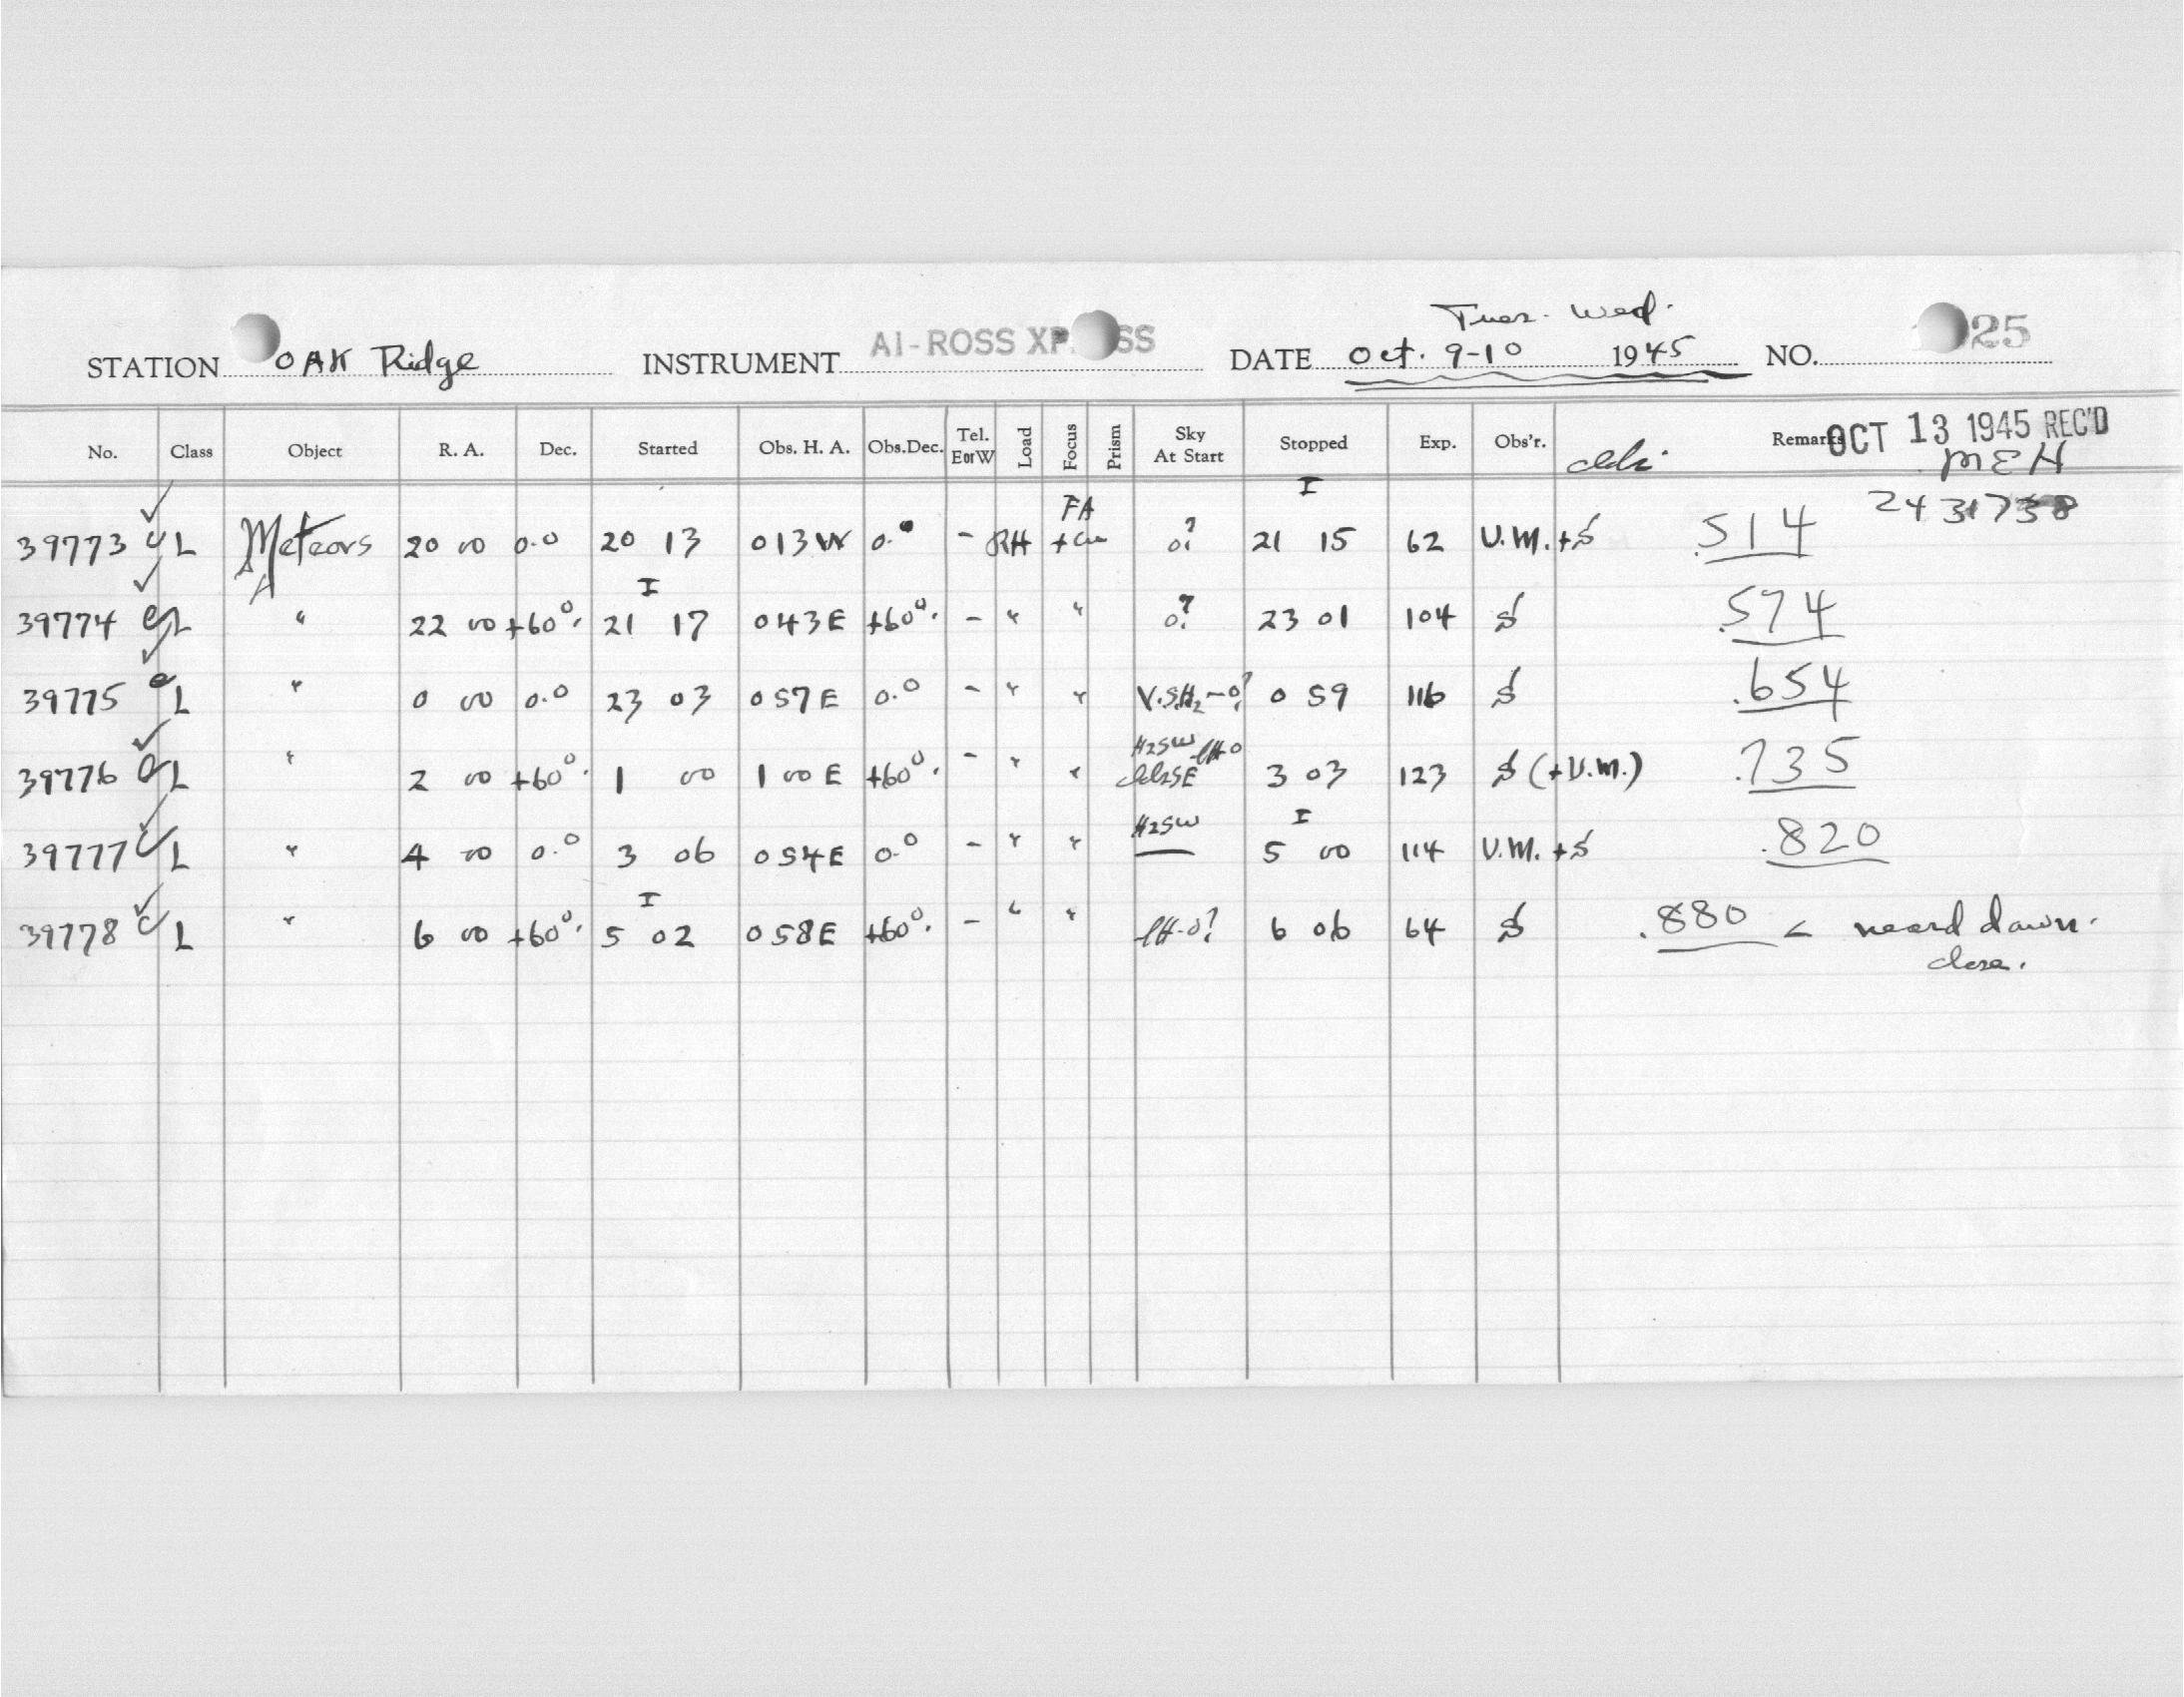 Tues. Wed.
STATION OAK Ridge INSTRUMENT AI-ROSS XP SS DATE Oct. 9-10 1945 NO. 25
No. Class Object R. A. Dec. Started Obs. H. A. Obs. Dec. Tel. E or W Load Focus Prism Sky At Start Stopped Exp. Obs'r. Remarks OCT 13 1945 REC'D
MEH
2431738
39773 L Meteors 20 00 0.0 20 13 0 13 W 0.0 - RH FA 0? I 21 15 62 V.M. + S .514
39774 L " 22 00 +60°. I 21 17 0 43 E +60°. - " " 0? 23 01 104 S .574
39775 L " 0 00 0.0 23 03 0 57 E 0.0 - " " V.S.H2-0? 0 59 116 S .654
39776 L " 2 00 +60°. 1 00 1 00 E +60°. - " " H2SW 3 03 123 S (+V.M.) .735
39777 L " 4 00 0.0 3 06 0 54 E 0.0 - " " H2SW I 5 00 114 V.M. + S .820
39778 L " 6 00 +60°. I 5 02 0 58 E +60°. - " " lH-0? 6 06 64 S .880 < neard dawn.
close.